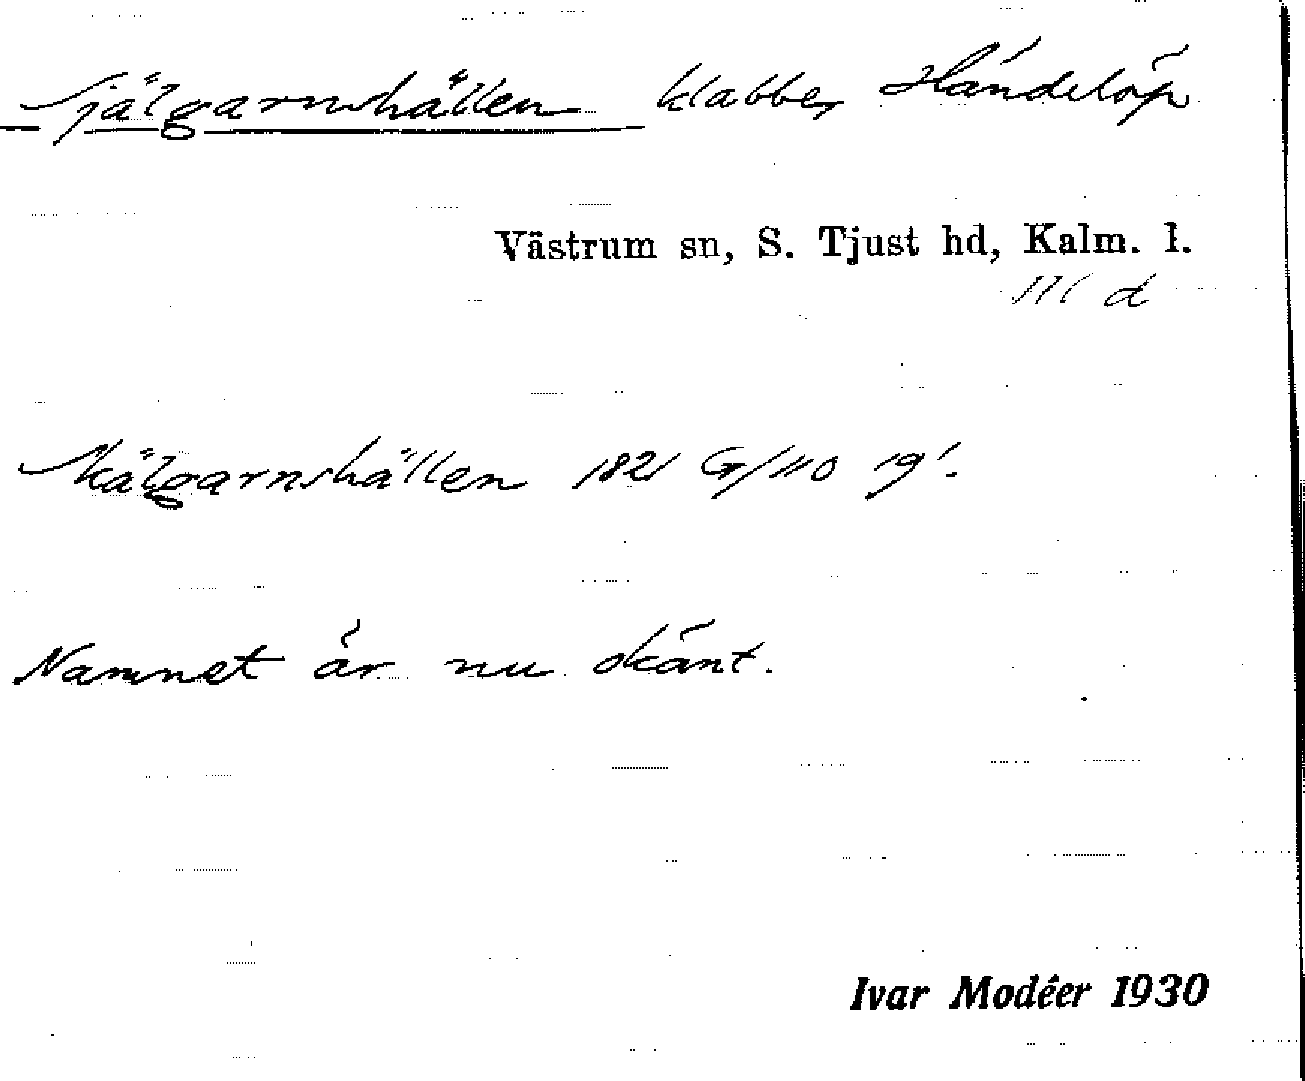 Själgarnshällen klabbe, Händelöp
Västrum sn, S. Tjust hd, Kalm. l.
III d
Skälgarnshällen 1821 G/110 19'.
Namnet är nu okänt.
Ivar Modéer 1930